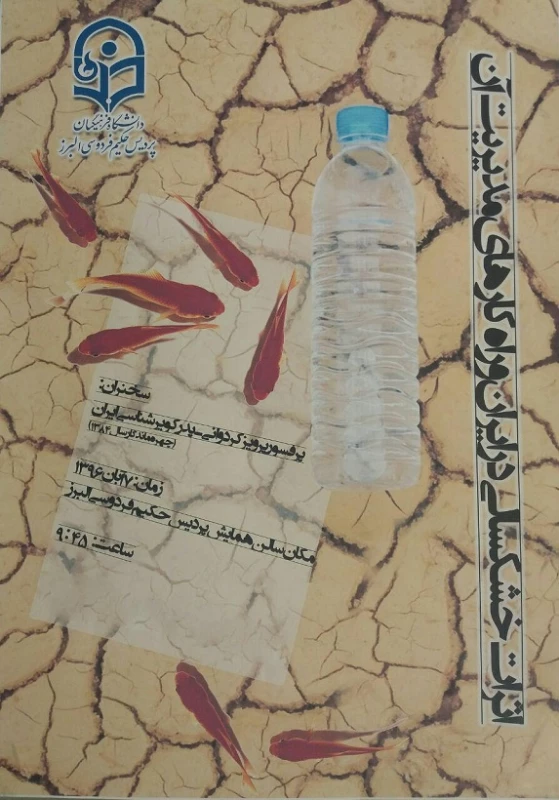 دانشگاه فرهنگیان
پردیس حکیم فردوسی البرز
اثرات خشکسالی در ایران و راه کارهای مدیریت آن
سخنران:
پرفسور پرویز کردوانی-پدر کویر شناسی ایران
(چهره ماندگار سال ۱۳۸۲)
زمان: ۱۷ آبان ۱۳۹۶
مکان سالن همایش پردیس حکیم فردوسی البرز
ساعت: ۹:۴۵